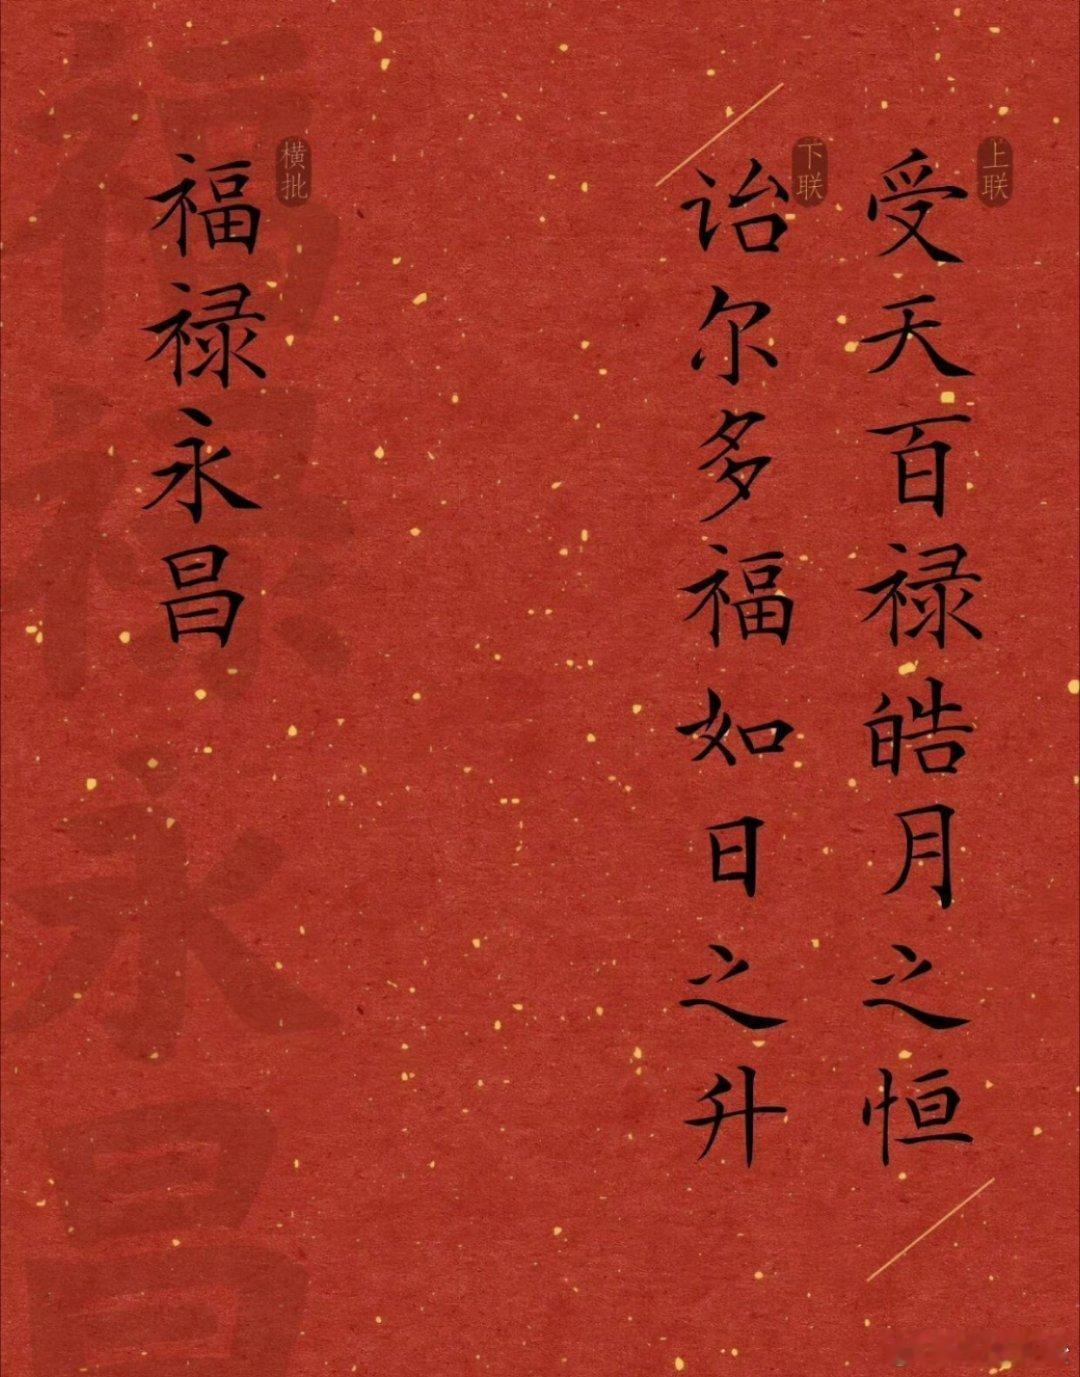 上联
受天百禄皓月之恒
下联
诒尔多福如日之升
横批
福禄永昌
福禄永昌